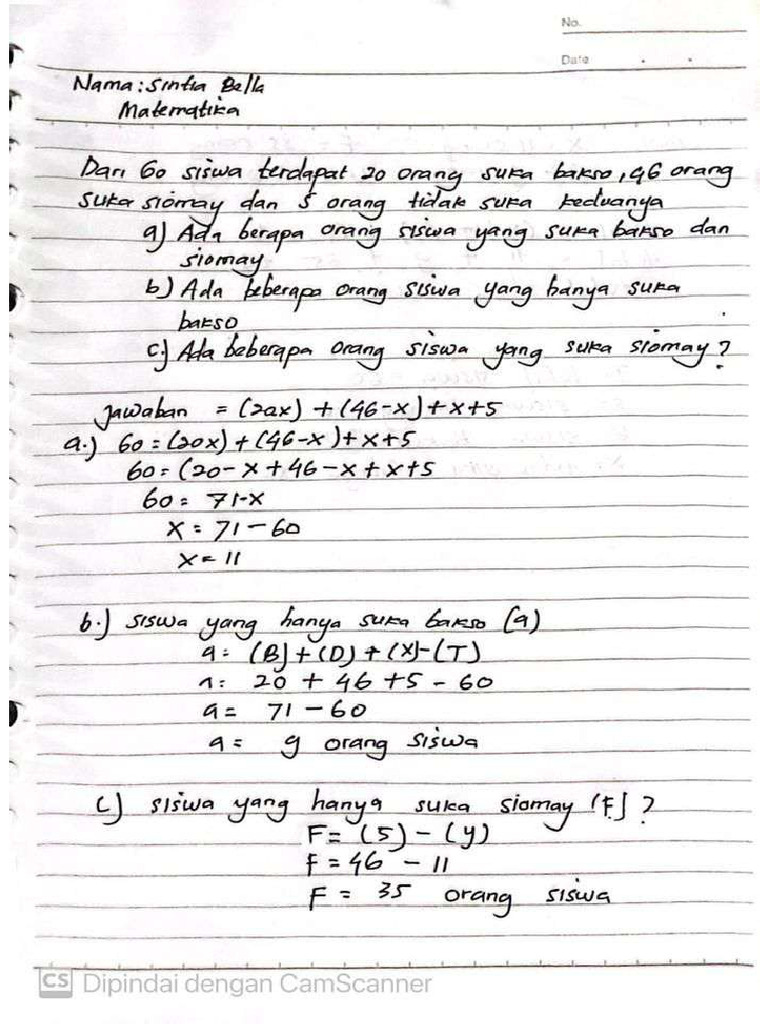 No.
Date
Nama: Sintia Bella
Matematika
Dari 60 siswa terdapat 20 orang suka bakso, 46 orang
suka siomay dan 5 orang tidak suka keduanya
a) Ada berapa orang siswa yang suka bakso dan
siomay
b) Ada beberapa orang siswa yang hanya suka
bakso
c.) Ada beberapa orang siswa yang suka siomay?
Jawaban = (20x) + (46-x) + x+5
a.) 60 = (20x) + (46-x) + x+5
60 = (20-x+46-x+x+5
60 = 71-x
x = 71-60
x = 11
b.) siswa yang hanya suka bakso (a)
a = (B) + (D) + (x)-(T)
a = 20 + 46 +5 - 60
a = 71 - 60
a = 9 orang siswa
c) siswa yang hanya suka siomay (F) ?
F = (5) - (y)
F = 46 - 11
F = 35 orang siswa
CS Dipindai dengan CamScanner